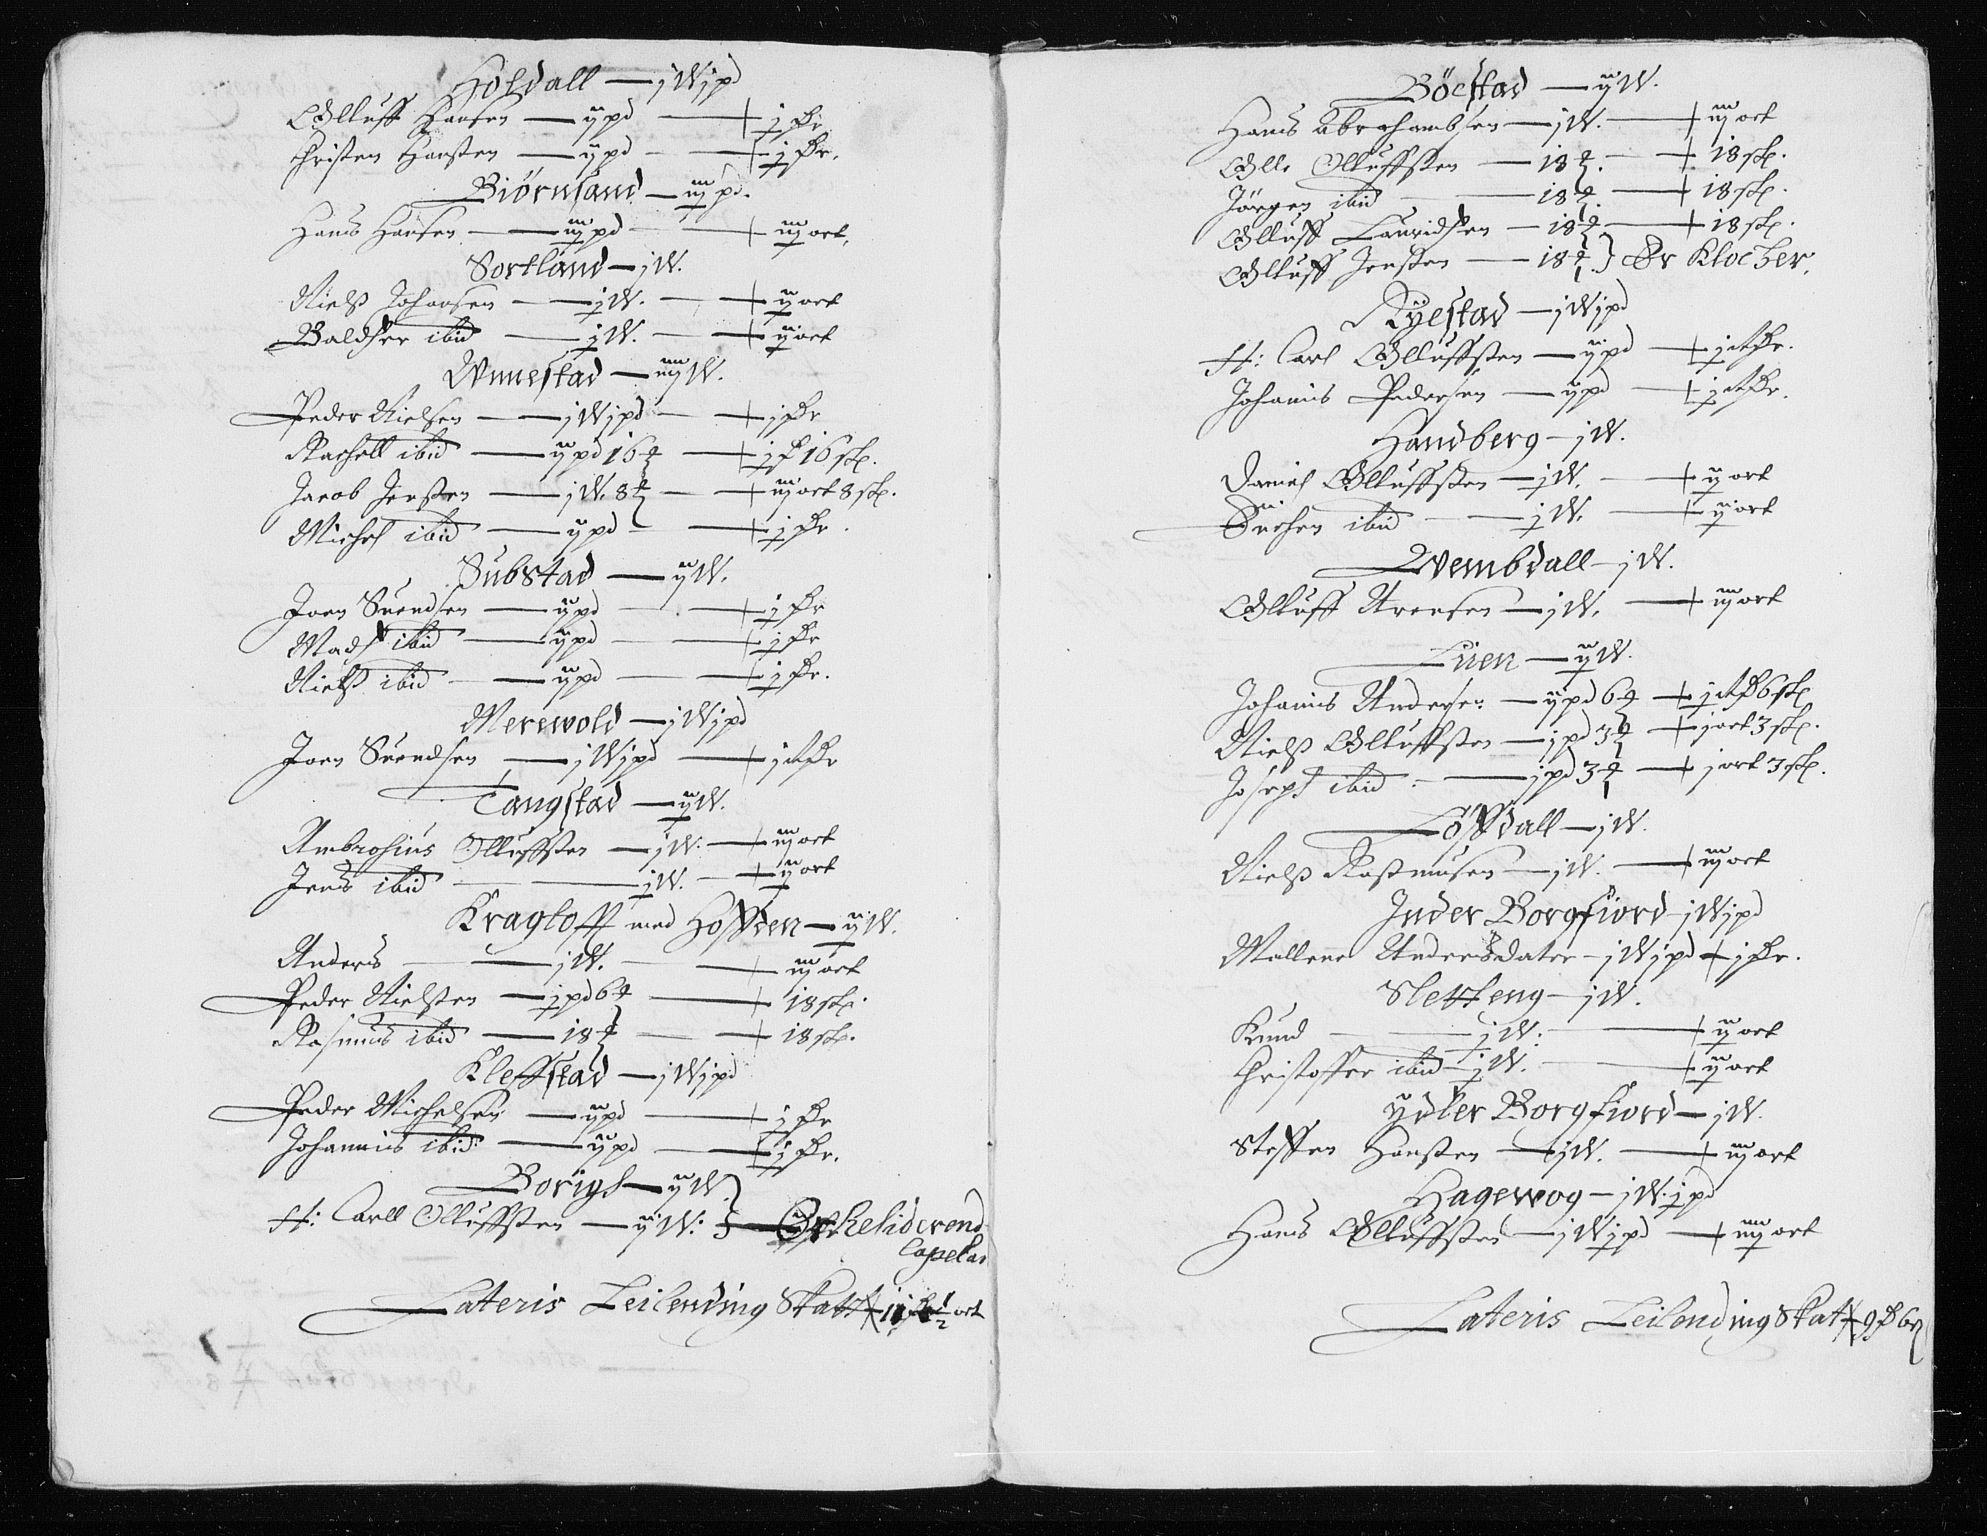 Holdall — j W j pd
Olluff Hansen — ij pd — j ₰r
Christen Hansten — ij pd — j ₰r.
Biørnsand — iij pd.
Hans Hansen — iij pd — iij ort.
Sortland — j W.
Nielß Johansen — j W. — ij ort
Baldser ibid — j W. — ij ort
Wnnestad — iiij W.
Peder Nielsen — j W j pd — j ₰r
Rachell ibid — ij pd 16 — j ₰ 16 sk.
Jacob Jensten — j W. 8 — iij ort 8 sk.
Michel ibid — ij pd — j ₰r.
Substad — ij W.
Joen Suendsen — ij pd — j ₰r
Madß ibid — ij pd — j ₰r
Nielß ibid — ij pd — j ₰r.
Merewold — j W j pd
Joen Suendsen — j W j pd — j ₰r
Tangstad — ij W.
Ambrosius Olluffsten — j W. — iij ort
Jens ibid — j W. — ij ort
Kragtofft med Hoffden — ij W.
Anders — j W. — iij ort
Peder Nielsten — j pd 6 — 18 sk.
Rasmus ibid — 18 — 18 sk.
Kleffstad — j W j pd
Peder Michelsen — ij pd — j ₰r
Johannis ibid: — ij pd — j ₰r.
Borigh — ij W
H: Carll Olluffsten — ij W:
Capelan
Lateris Leilending Skatt
Böestad — ij W.
Hans Abrahambsen — j W. — iij ort
Olle Olluffsten — 18. — 18 sk.
Jörgen ibid — 18. — 18 sk.
Olluff Lauridsen — 18 — 18 sk.
Olluff Jensten — 18 Er Klocker.
Ryestad — j W j pd
H: Carl Olluffsten — ij pd — j ₰r.
Johannis Pedersen — ij pd — j ₰r.
Handberg — j W.
Daniel Olluffsten — j W. — ij ort
ibid — j W. — ij ort
Wembdall — j W.
Olluff Arensen — j W. — iij ort
Lien — ij W.
Johannis Andersen — ij pd 6 — j ₰ 6 sk.
Nielß Olluffsten — j pd 3 — j ort 3 sk.
Joseph ibid: — j pd 3 — j ort 3 sk.
Löffdall — j W.
Nielß Rasmusen — j W. — iij ort
Inder Borgfiord — j W j pd
Mallene Andersdater — j W j pd — j ₰r.
Sletteng — j W.
Knud — j W: — ij ort
Christoffer ibid — j W. — ij ort
Yder Borgfiord — j W.
Steffen Hansten — j W. — iij ort
Hagewog — j W. j pd
Hans Olluffsten — j W j pd — iiij ort
Lateris Leilending Skatt